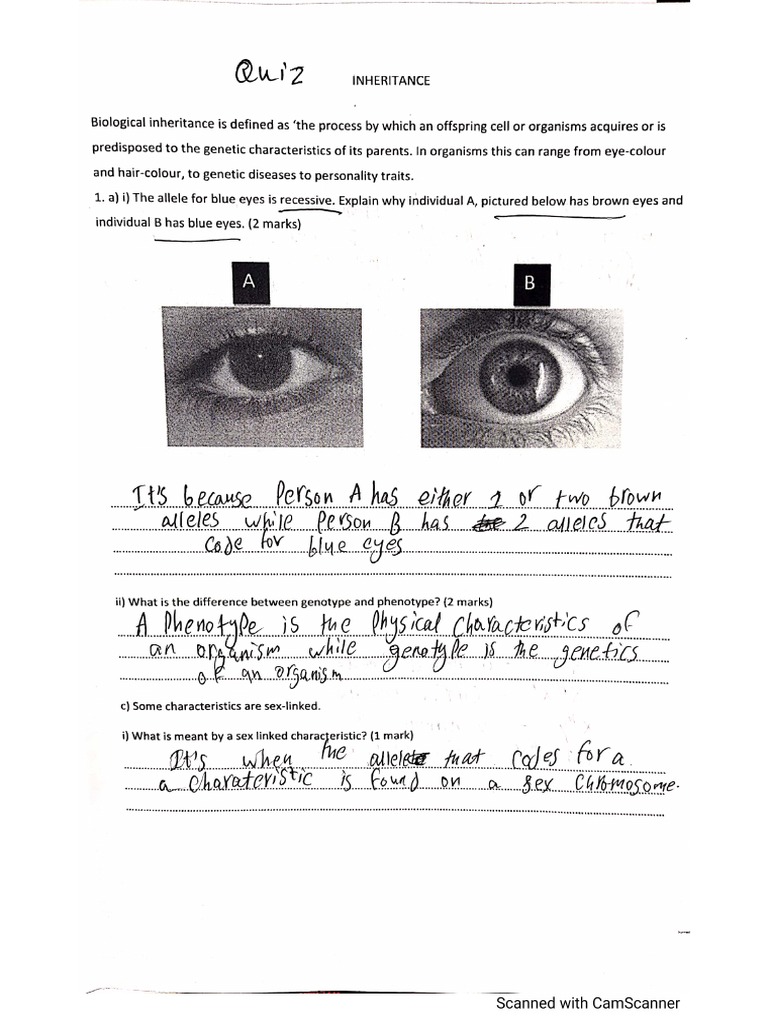 Quiz INHERITANCE
Biological inheritance is defined as 'the process by which an offspring cell or organisms acquires or is
predisposed to the genetic characteristics of its parents. In organisms this can range from eye-colour
and hair-colour, to genetic diseases to personality traits.
1. a) i) The allele for blue eyes is recessive. Explain why individual A, pictured below has brown eyes and
individual B has blue eyes. (2 marks)
A B
It's because Person A has either 1 or two brown
alleles while Person B has 2 alleles that
code for blue eyes
ii) What is the difference between genotype and phenotype? (2 marks)
A Phenotype is the Physical characteristics of
an organism while genotype is the genetics
of an organism
c) Some characteristics are sex-linked.
i) What is meant by a sex linked characteristic? (1 mark)
It's when the allele that codes for a
a charateristic is found on a sex chromosome.
Scanned with CamScanner